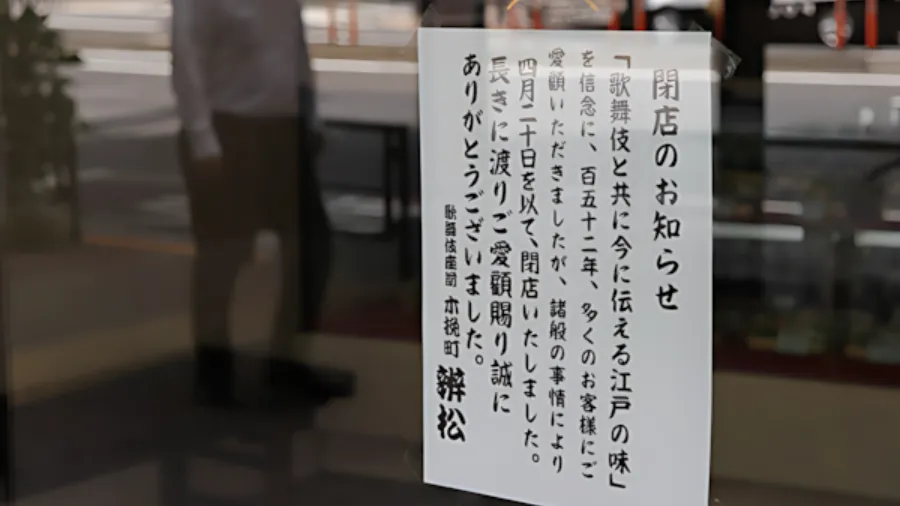 閉店のお知らせ
「歌舞伎と共に今に伝える江戸の味」
を信念に、百五十二年、多くのお客様にご
愛顧いただきましたが、諸般の事情により
四月二十日を以て、閉店いたしました。
長きに渡りご愛顧賜り誠に
ありがとうございました。
歌舞伎座前 木挽町 辨松